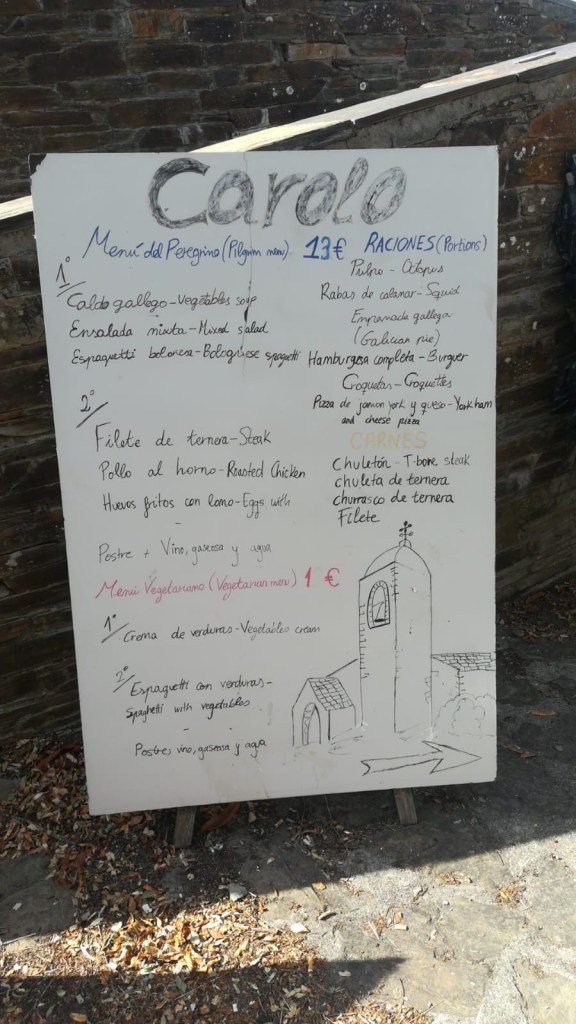 Carolo
Menú del Peregrino (Pilgrim menu) 13€
1º
Caldo gallego - Vegetables soup
Ensalada mixta - Mixed salad
Espaguetti bolonesa - Bolognese spaguetti
2º
Filete de ternera - Steak
Pollo al horno - Roasted Chicken
Huevos fritos con lomo - Eggs with
-
Postre + Vino, gaseosa y agua
Menú Vegetariano (Vegetarian menu) 1 €
1º
Crema de verduras - Vegetables cream
2º
Espaguetti con verduras -
Spaghetti with vegetables
-
Postre, vino, gaseosa y agua
RACIONES (Portions)
Pulpo - Octopus
Rabas de calamar - Squid
Empanada gallega
(Galician pie)
Hamburgesa completa - Burguer
Croquetas - Croquettes
Pizza de jamon york y queso - York ham
and cheese pizza
CARNES
Chuletón - T-bone steak
chuleta de ternera
churrasco de ternera
Filete